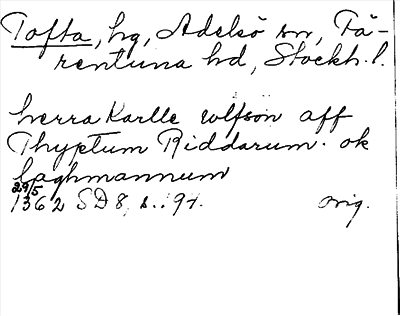 Tofta, hg, Adelsö sn, Fä-
rentuna hd, Stockh. l.
herra Karlle wlfson aff
Thyptum Riddarum. ok
laghmannum
29/5
1362 SD 8, s. 197. orig.